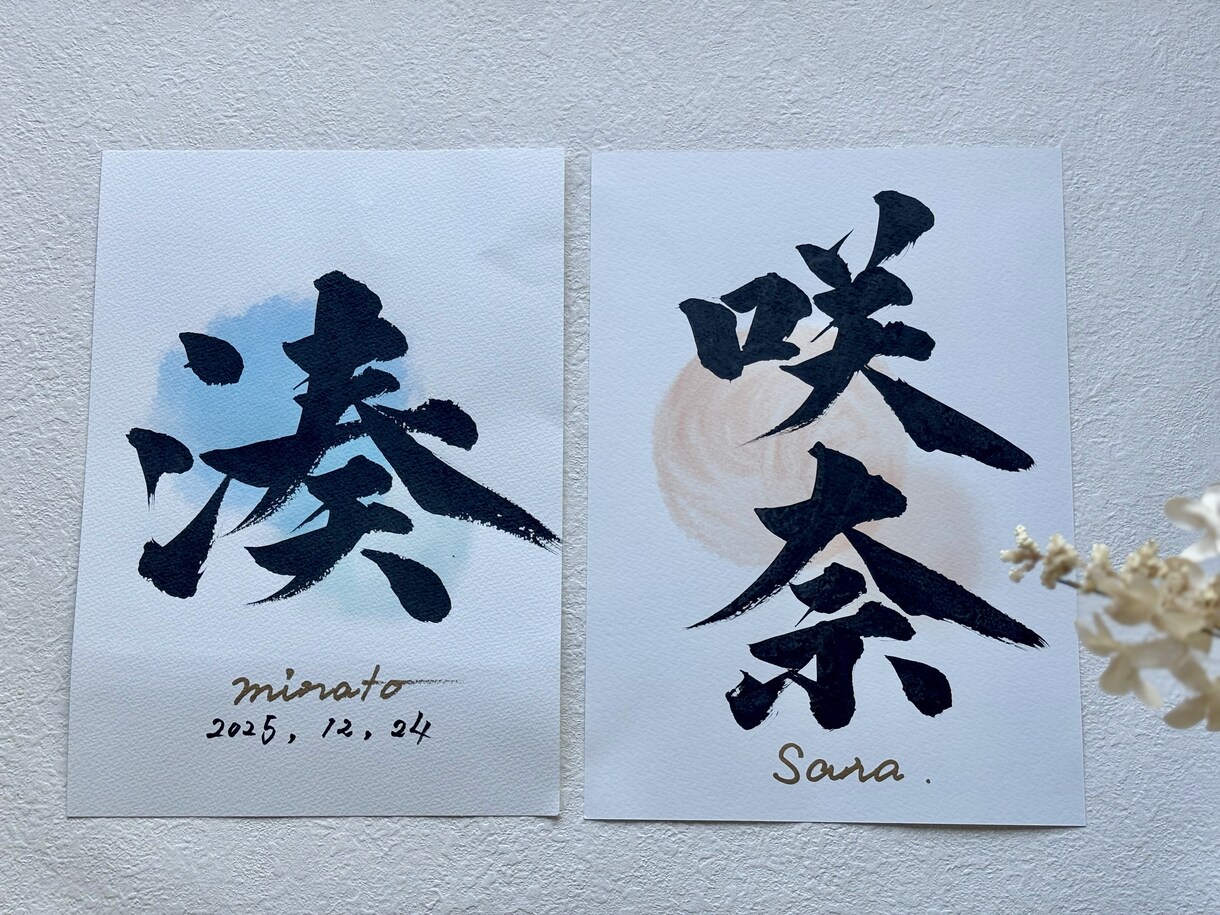 湊
minato
2025, 12, 24
咲
奈
Sara.